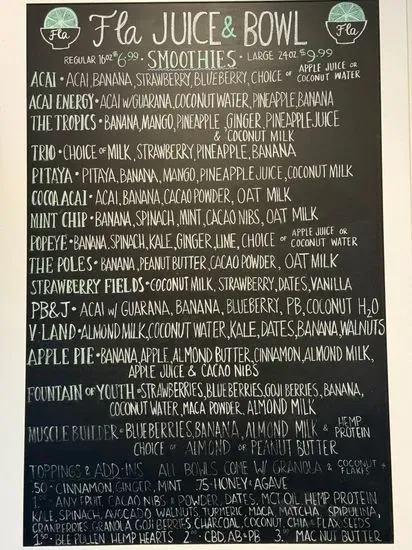 Fla
Fla JUICE & BOWL
Fla
REGULAR 16oz $6.99 • SMOOTHIES • LARGE 24oz $9.99
ACAI • ACAI, BANANA, STRAWBERRY, BLUEBERRY, CHOICE OF APPLE JUICE OR COCONUT WATER
ACAI ENERGY • ACAI W/ GUARANA, COCONUT WATER, PINEAPPLE, BANANA
THE TROPICS • BANANA, MANGO, PINEAPPLE, GINGER, PINEAPPLE JUICE
& COCONUT MILK
TRIO • CHOICE OF MILK, STRAWBERRY, PINEAPPLE, BANANA
PITAYA • PITAYA, BANANA, MANGO, PINEAPPLE JUICE, COCONUT MILK
COCOACAI • ACAI, BANANA, CACAO POWDER, OAT MILK
MINT CHIP • BANANA, SPINACH, MINT, CACAO NIBS, OAT MILK
POPEYE • BANANA, SPINACH, KALE, GINGER, LIME, CHOICE OF APPLE JUICE OR COCONUT WATER
THE POLES • BANANA, PEANUT BUTTER, CACAO POWDER, OAT MILK
STRAWBERRY FIELDS • COCONUT MILK, STRAWBERRY, DATES, VANILLA
PB&J • ACAI W/ GUARANA, BANANA, BLUEBERRY, PB, COCONUT H2O
V-LAND • ALMOND MILK, COCONUT WATER, KALE, DATES, BANANA, WALNUTS
APPLE PIE • BANANA, APPLE, ALMOND BUTTER, CINNAMON, ALMOND MILK,
APPLE JUICE & CACAO NIBS
FOUNTAIN OF YOUTH • STRAWBERRIES, BLUEBERRIES, GOJI BERRIES, BANANA,
COCONUT WATER, MACA POWDER, ALMOND MILK
MUSCLE BUILDER • BLUEBERRIES, BANANA, ALMOND MILK & HEMP PROTEIN
CHOICE OF ALMOND OR PEANUT BUTTER
TOPPINGS & ADD-INS ALL BOWLS COME W/ GRANOLA & COCONUT FLAKES
.50 • CINNAMON, GINGER, MINT .75 • HONEY & AGAVE
ANY FRUIT, CACAO NIBS & POWDER, DATES, MCT OIL, HEMP PROTEIN
KALE, SPINACH, AVOCADO, WALNUTS, TURMERIC, MACA, MATCHA, SPIRULINA,
CRANBERRIES, GRANOLA, GOJI BERRIES, CHARCOAL, COCONUT, CHIA & FLAX SEEDS
1.50 • BEE POLLEN, HEMP HEARTS 2.00 • CBD, AB & PB 3.00 MAC NUT BUTTER